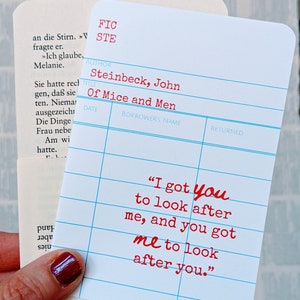 an die Stirn. »W
fragte er.
»Ich glaube,
Melanie.
Sie hatte rech
den, daß sie
ten. Nieman
Aufregung
Die Frau neb
Am wi
FIC
STE
AUTHOR
Steinbeck, John
Of Mice and Men
DATE BORROWERS NAME RETURNED
"I got you
to look after
me, and you got
me to look
after you."